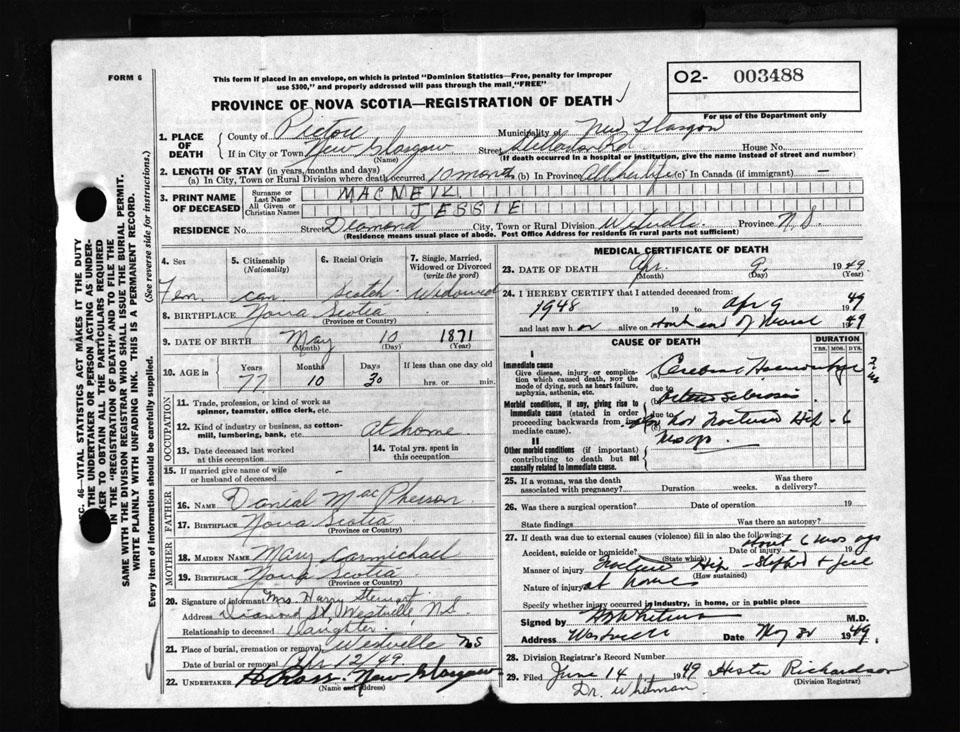 FORM 6
This form if placed in an envelope, on which is printed "Dominion Statistics—Free, penalty for improper
use $300," and properly addressed will pass through the mail, "FREE"
O2- 003488
For use of the Department only
PROVINCE OF NOVA SCOTIA—REGISTRATION OF DEATH
1. PLACE OF DEATH
County of Pictou Municipality of New Glasgow
If in City or Town New Glasgow (Name) Street Stellarton Rd. House No.
(If death occurred in a hospital or institution, give the name instead of street and number)
2. LENGTH OF STAY (in years, months and days)
(a) In City, Town or Rural Division where death occurred 10 months (b) In Province All her life (c) In Canada (if immigrant) —
3. PRINT NAME OF DECEASED
Surname or Last Name MACNEIL
All Given or Christian Names JESSIE
RESIDENCE No. Street Diamond City, Town or Rural Division Westville Province N.S.
(Residence means usual place of abode. Post Office Address for residents in rural parts not sufficient)
4. Sex Fem.
5. Citizenship (Nationality) can.
6. Racial Origin Scotch
7. Single, Married, Widowed or Divorced (write the word) Widowed
8. BIRTHPLACE Nova Scotia
(Province or Country)
9. DATE OF BIRTH May (Month) 10 (Day) 1871 (Year)
10. AGE in Years 77 Months 10 Days 30 If less than one day old hrs. or min.
OCCUPATION
11. Trade, profession, or kind of work as spinner, teamster, office clerk, etc.
12. Kind of industry or business, as cotton-mill, lumbering, bank, etc. At home
13. Date deceased last worked at this occupation
14. Total yrs. spent in this occupation
15. If married give name of wife or husband of deceased -
FATHER
16. Name Danial MacPherson
17. Birthplace Nova Scotia
(Province or Country)
MOTHER
18. Maiden Name Mary Carmichael
19. Birthplace Nova Scotia
(Province or Country)
20. Signature of informant Mrs. Harry Stewart
Address Diamond St. Westville N.S.
Relationship to deceased Daughter
21. Place of burial, cremation or removal Westville NS
Date of burial or removal Apr 12/49
22. UNDERTAKER New Glasgow
(Name and address)
MEDICAL CERTIFICATE OF DEATH
23. DATE OF DEATH Apr. (Month) 9 (Day) 1949 (Year)
24. I HEREBY CERTIFY that I attended deceased from:
1948 19 to Apr 9 1949
and last saw h er alive on about end of March 1949
CAUSE OF DEATH
DURATION
YRS. MOS. DYS.
I
Immediate cause
Give disease, injury or complication which caused death, NOT the mode of dying, such as heart failure, asphyxia, asthenia, etc.
Cerebral Haemorrhage
due to
Morbid conditions, if any, giving rise to immediate cause (stated in order proceeding backwards from immediate cause).
Arterio Sclerosis
due to
Fractured Hip - 6
mos ago
II
Other morbid conditions (if important) contributing to death but not causally related to immediate cause.
25. If a woman, was the death associated with pregnancy? Duration weeks. Was there a delivery?
26. Was there a surgical operation? Date of operation 19
State findings Was there an autopsy?
27. If death was due to external causes (violence) fill in also the following:
Accident, suicide or homicide? (State which) Date of injury about 6 mos ago 19
Manner of injury Fracture Hip - Slipped & fell
(How sustained)
Nature of injury at home
Specify whether injury occurred in industry, in home, or in public place
Signed by Whitman M.D.
Address Westville Date 1949
28. Division Registrar's Record Number
29. Filed June 14 1949 Hester Richardson
(Division Registrar)
Dr. Whitman.
SEC. 46—VITAL STATISTICS ACT MAKES IT THE DUTY
THE UNDERTAKER OR PERSON ACTING AS UNDER-
TAKER TO OBTAIN ALL THE PARTICULARS REQUIRED
IN THE "REGISTRATION OF DEATH" AND TO FILE THE
SAME WITH THE DIVISION REGISTRAR WHO SHALL ISSUE THE BURIAL PERMIT.
WRITE PLAINLY WITH UNFADING INK. THIS IS A PERMANENT RECORD.
Every item of information should be carefully supplied. (See reverse side for instructions.)